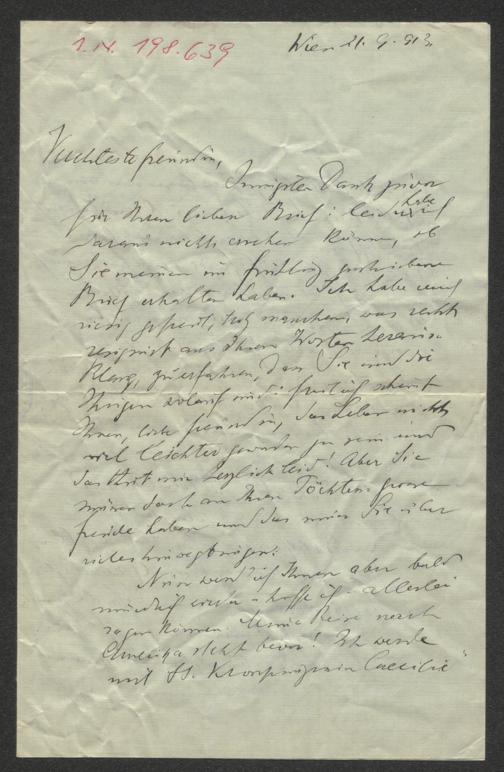 I.N. 198.639
Wien 21. 9. 913.
Verehrteste Freundin,
Innigsten Dank zuvor
für Ihren lieben Brief! leider habe ich
daraus nichts ersehen können, ob
Sie meinen im Frühling geschriebenen
Brief erhalten haben. Ich habe mich
riesig gefreut, trotz manchem, was recht
resigniert aus Ihren Worten heraus
klang, zu erfahren, dass Sie und die
Ihrigen wolauf sind: freilich scheint
Ihnen, liebe Freundin, das Leben nicht
viel leichter geworden zu sein und
das thut mir herzlich leid! Aber Sie
müssen doch an Ihren Töchtern grosse
Freude haben und das muss Sie über
vieles hinwegbringen.
Nun werd ich Ihnen aber bald
mündlich wieder - hoffe ich - allerlei
sagen können. Meine Reise nach
Amerika steht bevor! Ich werde
mit SS. Kronprinzessin Caecilie"